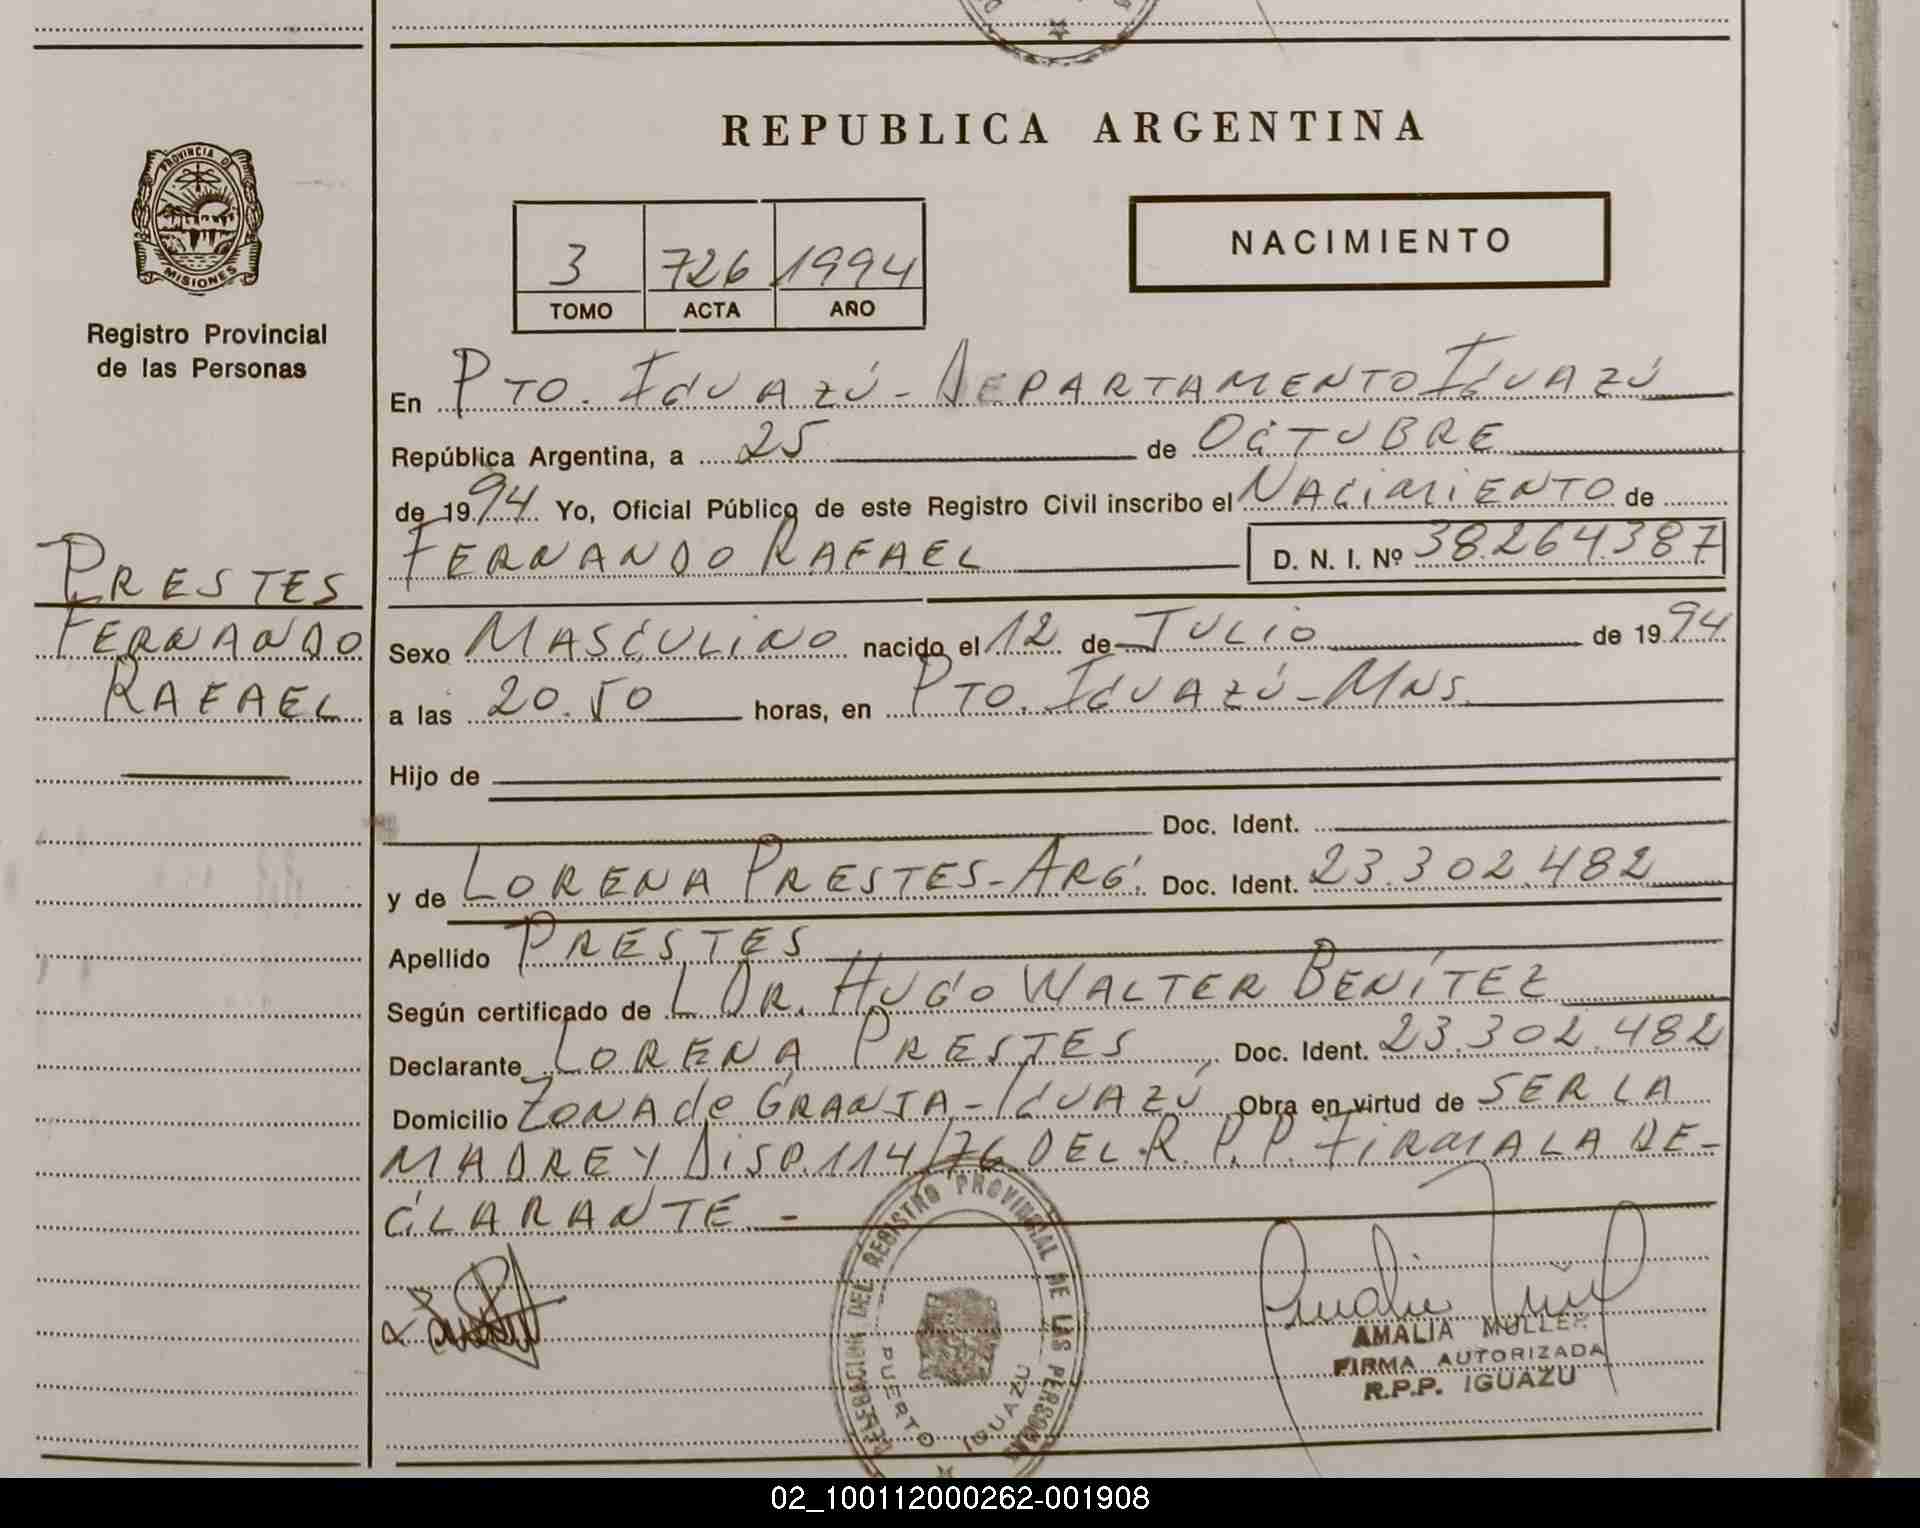 REPUBLICA ARGENTINA
PROVINCIA D
MISIONES
Registro Provincial
de las Personas
3 726 1994
TOMO ACTA AÑO
NACIMIENTO
En PTO. IGUAZÚ - DEPARTAMENTO IGUAZÚ
República Argentina, a 25 de OCTUBRE
de 1994 Yo, Oficial Público de este Registro Civil inscribo el NACIMIENTO de
FERNANDO RAFAEL D. N. I. Nº 38.264.387
PRESTES
FERNANDO
RAFAEL
Sexo MASCULINO nacido el 12 de JULIO de 1994
a las 20.50 horas, en PTO. IGUAZÚ - MNS.
Hijo de
Doc. Ident.
y de LORENA PRESTES - ARG. Doc. Ident. 23.302.482
Apellido PRESTES
Según certificado de L DR. HUGO WALTER BENÍTEZ
Declarante LORENA PRESTES Doc. Ident. 23.302.482
Domicilio ZONA de GRANJA - IGUAZÚ Obra en virtud de SER LA
MADRE Y DISP. 114/76 DEL R. P. P. FIRMA LA DE-
CLARANTE -
DELEGACION DEL REGISTRO PROVINCIAL DE LAS PERSONAS
PUERTO IGUAZU
AMALIA MULLER
FIRMA AUTORIZADA
R.P.P. IGUAZU
02_100112000262-001908